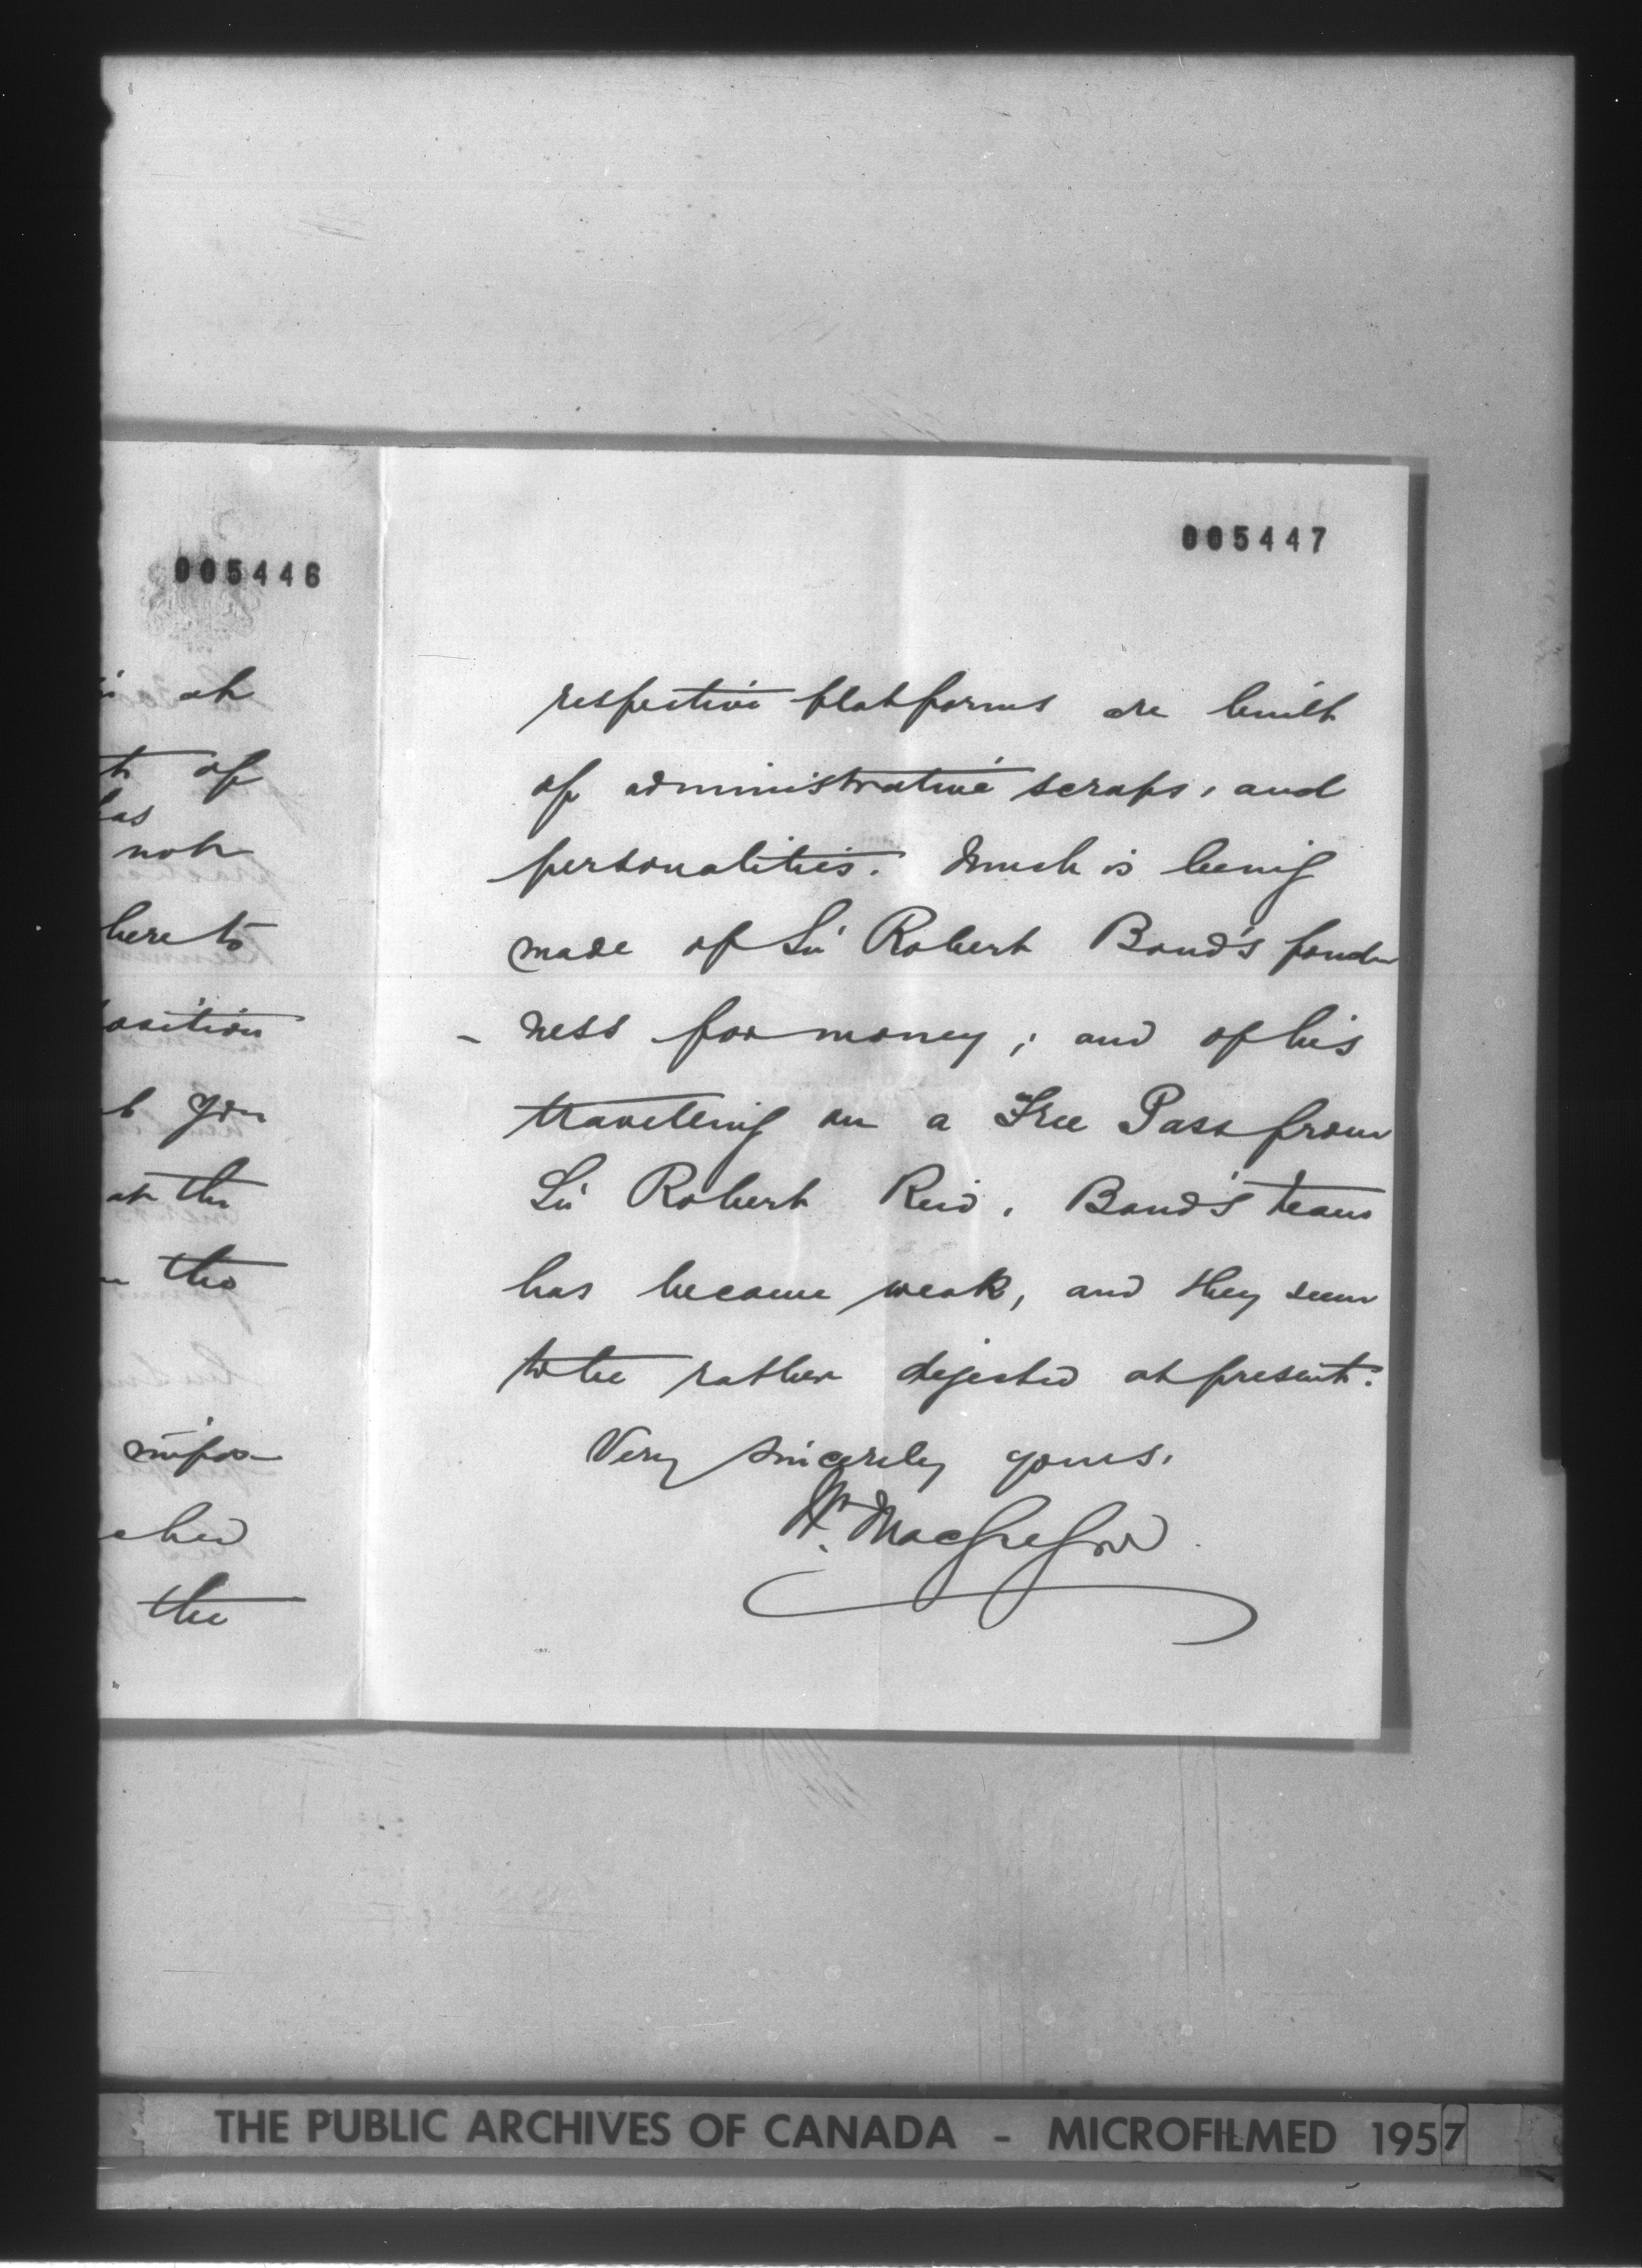 005446
at
of
has
not
here to
osition
you
at the
the
impos-
ched
the
005447
respective platforms are built
of administrative scraps, and
personalities. Much is being
made of Sir Robert Bond's fond-
- ness for money; and of his
travelling on a Free Pass from
Sir Robert Reid. Bond's team
has become weak, and they seem
to be rather dejected at present.
Very sincerely yours,
Wm. MacGregor
THE PUBLIC ARCHIVES OF CANADA - MICROFILMED 1957